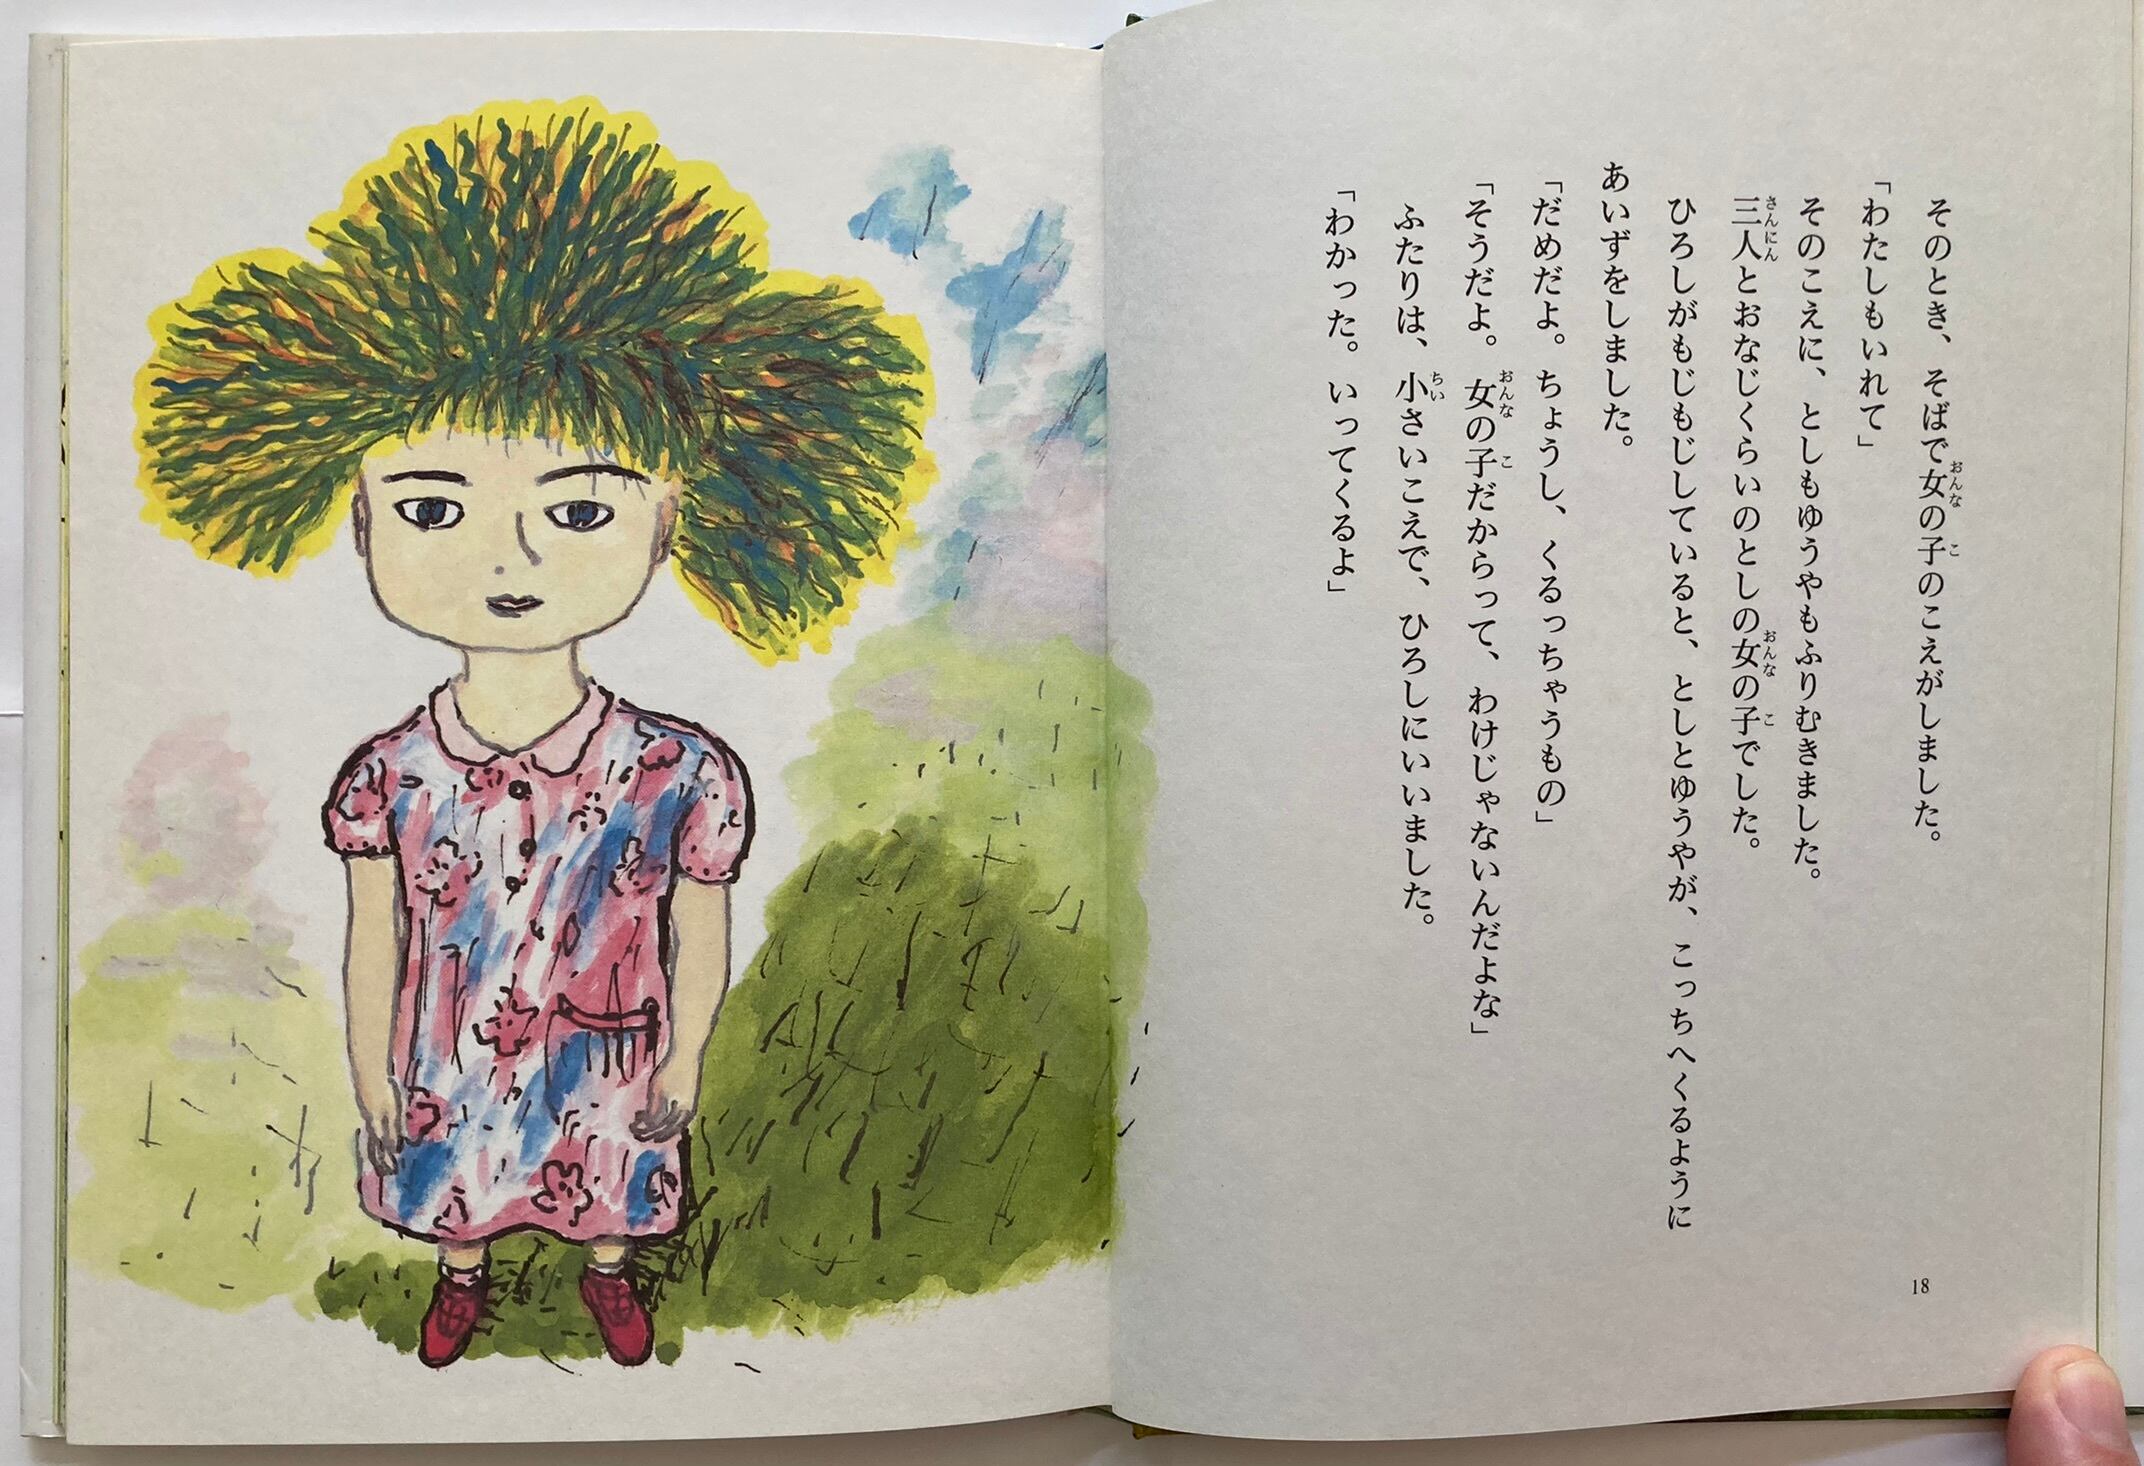 そのとき、そばで女の子のこえがしました。
「わたしもいれて」
そのこえに、としもゆうやもふりむきました。
三人とおなじくらいのとしの女の子でした。
ひろしがもじもじしていると、としとゆうやが、こっちへくるように
あいずをしました。
「だめだよ。ちょうし、くるっちゃうもの」
「そうだよ。女の子だからって、わけじゃないんだよな」
ふたりは、小さいこえで、ひろしにいいました。
「わかった。いってくるよ」
18